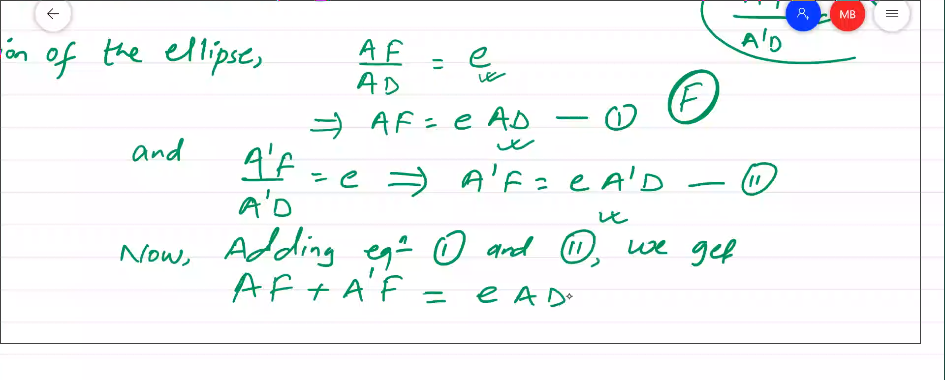 MB
A'D
ion of the ellipse, AF/AD = e
⇒ AF = e AD — Ⓘ Ⓕ
and A'F/A'D = e ⇒ A'F = e A'D — (II)
Now, Adding eqⁿ Ⓘ and (II), we get
AF + A'F = e AD